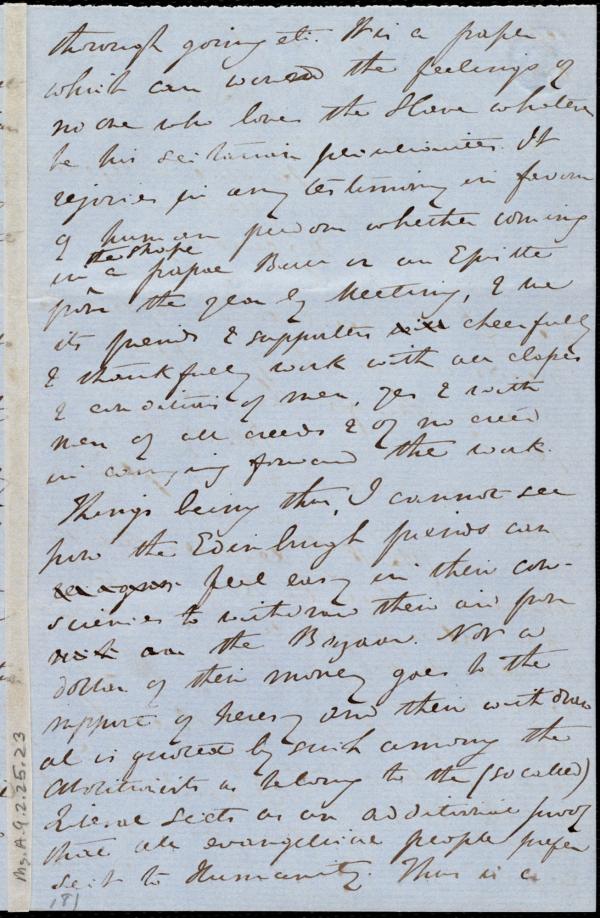 thorough going etc. It is a paper
which can wound the feelings of
no one who loves the Slave whatever
be his sectarian peculiarities. It
rejoices in any testimony in favour
of human freedom whether coming
the shape
in a papal Bull or an Epistle
from the Yearly Meeting, & we
its friends & supporters will cheerfully
& thankfully work with all classes
& conditions of men, yes & with
men of all creeds & of no creed
in carrying forward the work.
Things being thus, I cannot see
how the Edinburgh friends can
feel easy in their con-
sciences to withdraw their aid from
the Bazaar. Not a
dollar of their money goes to the
support of heresy and their withdraw
al is quoted by such among the
Abolitionists as belong to the (so called)
Liberal Sects as an additional proof
that all evangelical people prefer
Sect to Humanity. This is a
Ms. A. 9. 2. 25. 23
(8)